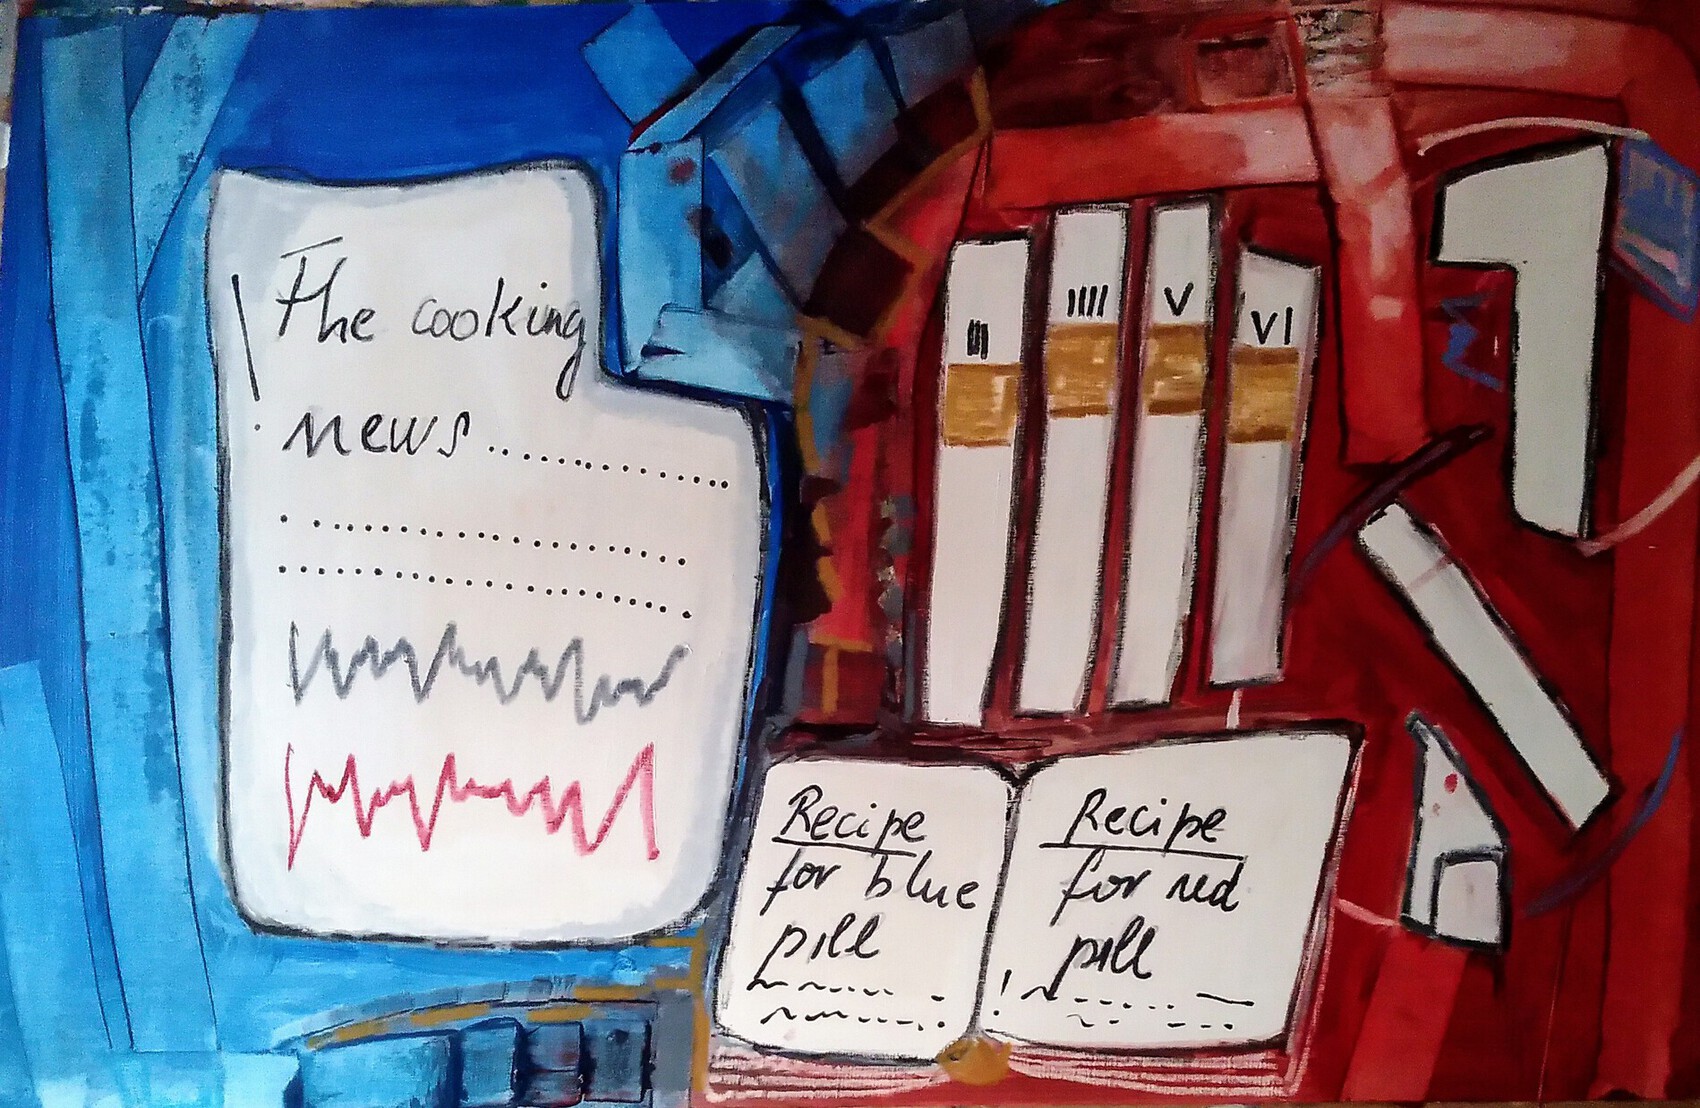 ! The cooking
news..............
III
IIII
V
VI
Recipe
for blue
pill
Recipe
for red
! pill